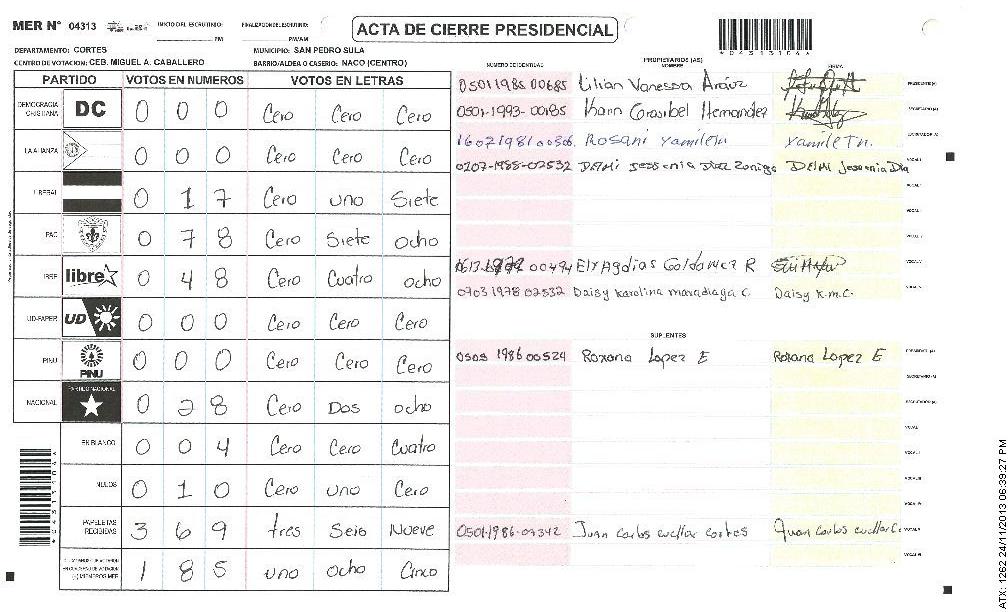 MER N° 04313 INICIO DEL ESCRUTINIO: PM FINALIZACION DEL ESCRUTINIO: PM/AM
ACTA DE CIERRE PRESIDENCIAL
DEPARTAMENTO: CORTES MUNICIPIO: SAN PEDRO SULA
CENTRO DE VOTACION: CEB. MIGUEL A. CABALLERO BARRIO/ALDEA O CASERIO: NACO (CENTRO)
PARTIDO VOTOS EN NUMEROS VOTOS EN LETRAS
DEMOCRACIA CRISTIANA DC 0 0 0 Cero Cero Cero
LA ALIANZA 0 0 0 Cero Cero Cero
LIBERAL 0 1 7 Cero uno Siete
PAC 0 7 8 Cero Siete ocho
LIBRE libre 0 4 8 Cero Cuatro ocho
UD-FAPER UD 0 0 0 Cero Cero Cero
PINU PINU 0 0 0 Cero Cero Cero
NACIONAL PARTIDO NACIONAL 0 2 8 Cero Dos ocho
EN BLANCO 0 0 4 Cero Cero Cuatro
NULOS 0 1 0 Cero uno Cero
PAPELETAS RECIBIDAS 3 6 9 tres Seis Nueve
(+) MIEMBROS MER 1 8 5 uno ocho Cinco
PROPIETARIOS (AS)
NUMERO DE IDENTIDAD NOMBRE FIRMA
0501 1985 00685 Lilian Vanessa Aráuz PRESIDENTE(A)
0501-1993-00185 Hernandez SECRETARIO (A)
Rosani Yamileth Yamileth. ESCRUTADOR (A)
0207-1988-02532 VOCAL I
00494 R
0703 1978 02532 Daisy Karolina maradiaga C. Daisy K.m.C.
SUPLENTES
0505 1986 00524 Roxana Lopez E Roxana Lopez E PRESIDENTE (A)
SECRETARIO (A)
ESCRUTADOR (A)
VOCAL I
0501-1986-09342 Juan Carlos cuellar cortes Juan Carlos cuellar C.
ATX: 1262 24/11/2013 06:39:27 PM